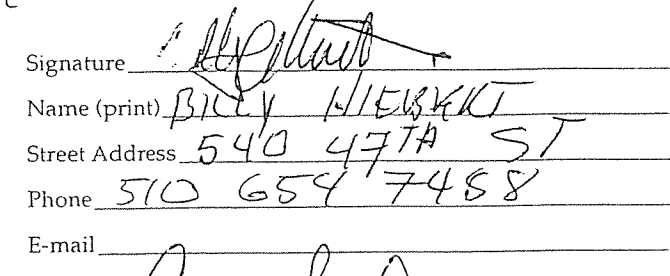 Signature
Name (print) BILLY HIEBERT
Street Address 540 47TH ST
Phone 510 654 7488
E-mail